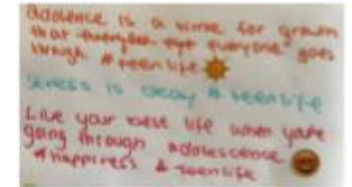 adolence is a time for growth
that everyone goes
through # teenlife
stress is okay # teenlife
Live your best life when you're
going through adolescence
# happiness & teenlife